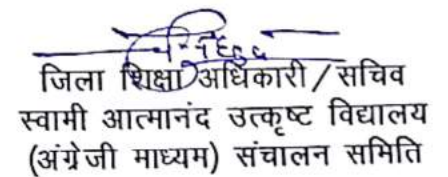 जिला शिक्षा अधिकारी/सचिव
स्वामी आत्मानंद उत्कृष्ट विद्यालय
(अंग्रेजी माध्यम) संचालन समिति